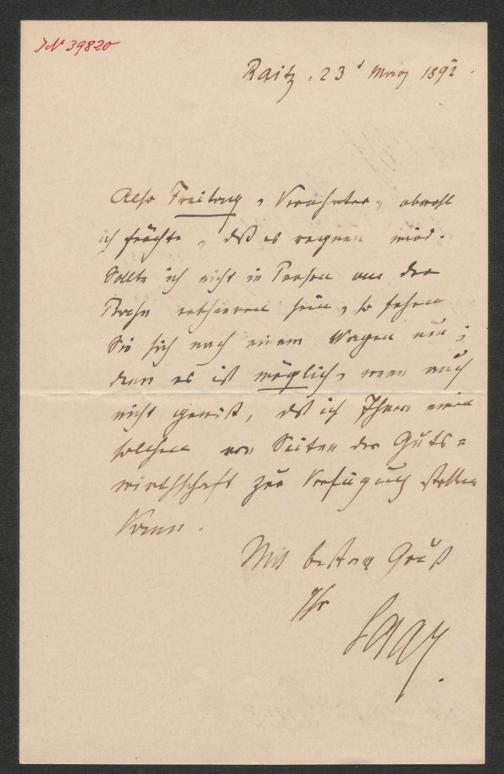 JN 39820
Raitz, 23t März 1892.
Also Freitag, Verehrter, obwohl
ich fürchte, daß es regnen wird.
Sollte ich nicht in Person an der
Bahn sein, so sehen
Sie sich nach einem Wagen um;
denn es ist möglich, wenn auch
nicht gewiß, daß ich Ihnen einen
solchen von Seiten der Guts=
wirthschaft zur Verfügung stellen
kann.
Mit bestem Gruß
Ihr
Saar.